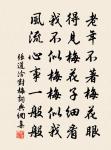 老年不著梅花眼
得見梅花子細看
我不似梅梅似我
風流心事一般般
張道洽對梅詞典網書